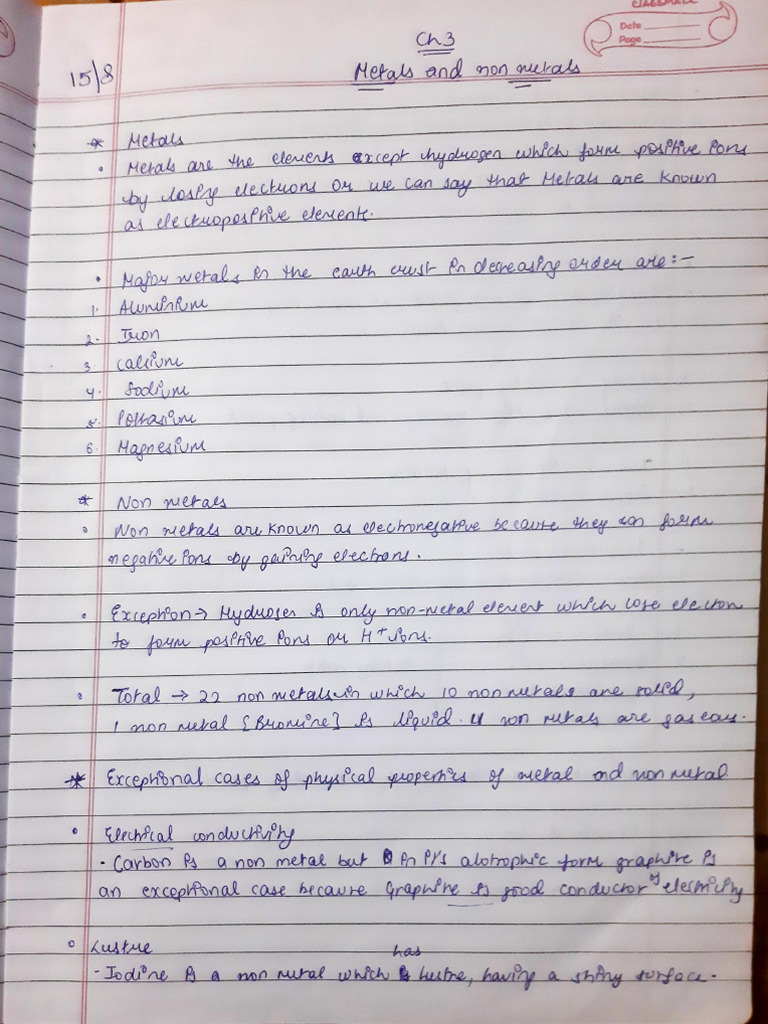 classmate
Date
Page
Ch 3
15/8
Metals and non metals
* Metals
• Metals are the elements except hydrogen which form positive ions
by losing electrons or we can say that Metals are known
as electropositive elements.
• Major metals in the earth crust in decreasing order are:-
1. Aluminium
2. Iron
3. Calcium
4. Sodium
5. Pottasium
6. Magnesium
* Non metals
• Non metals are known as electronegative because they can form
negative ions by gaining electrons.
• Exception → Hydrogen is only non-metal element which lose electron
to form positive ions or H+ ions.
• Total → 22 non metals in which 10 non metals are solid,
1 non metal {Bromine} is liquid. 11 non metals are gaseous.
* Exceptional cases of physical properties of metal and non metal
• Electrical conductivity
- Carbon is a non metal but in it's alotrophic form graphite is
an exceptional case because Graphite is good conductor of electricity
• Lustre
- Iodine is a non metal which has lustre, having a shiny surface.